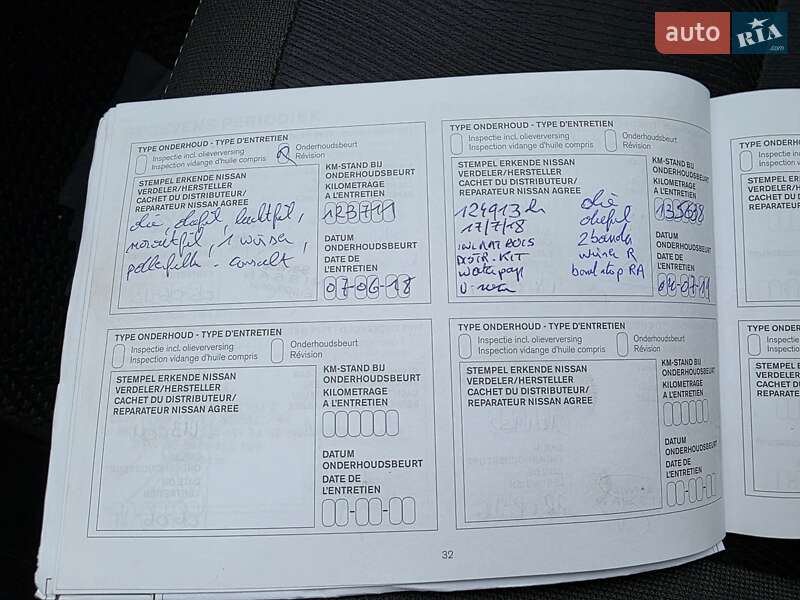 auto RIA.com
TYPE ONDERHOUD - TYPE D'ENTRETIEN
Inspectie incl. olieverversing
Inspection vidange d'huile compris
Onderhoudsbeurt
Révision
STEMPEL ERKENDE NISSAN
VERDELER/HERSTELLER
CACHET DU DISTRIBUTEUR/
REPARATEUR NISSAN AGREE
olie, oliefil, luchtfil,
1 wisser,
pollenfilter - consult,
KM-STAND BIJ
ONDERHOUDSBEURT
KILOMETRAGE
A L'ENTRETIEN
DATUM
ONDERHOUDSBEURT
DATE DE
L'ENTRETIEN
07-06-18
TYPE ONDERHOUD - TYPE D'ENTRETIEN
Inspectie incl. olieverversing
Inspection vidange d'huile compris
Onderhoudsbeurt
Révision
STEMPEL ERKENDE NISSAN
VERDELER/HERSTELLER
CACHET DU DISTRIBUTEUR/
REPARATEUR NISSAN AGREE
124913 k
17/7/18
DISTR. KIT
waterpap
olie
oliefil
2 banden
wisser R
KM-STAND BIJ
ONDERHOUDSBEURT
KILOMETRAGE
A L'ENTRETIEN
135698
DATUM
ONDERHOUDSBEURT
DATE DE
L'ENTRETIEN
TYPE ONDERHOUD - TYPE D'ENTRETIEN
Inspectie incl. olieverversing
Inspection vidange d'huile compris
Onderhoudsbeurt
Révision
STEMPEL ERKENDE NISSAN
VERDELER/HERSTELLER
CACHET DU DISTRIBUTEUR/
REPARATEUR NISSAN AGREE
KM-STAND BIJ
ONDERHOUDSBEURT
KILOMETRAGE
A L'ENTRETIEN
DATUM
ONDERHOUDSBEURT
DATE DE
L'ENTRETIEN
TYPE ONDERHOUD - TYPE D'ENTRETIEN
Inspectie incl. olieverversing
Inspection vidange d'huile compris
Onderhoudsbeurt
Révision
STEMPEL ERKENDE NISSAN
VERDELER/HERSTELLER
CACHET DU DISTRIBUTEUR/
REPARATEUR NISSAN AGREE
KM-STAND BIJ
ONDERHOUDSBEURT
KILOMETRAGE
A L'ENTRETIEN
DATUM
ONDERHOUDSBEURT
DATE DE
L'ENTRETIEN
32
TYPE ONDERH
Inspectie
Inspection
STEMPEL E
VERDELER/
CACHET DU
REPARATEU
TYPE ONDER
Inspectie
Inspection
STEMPEL
VERDELER
CACHET D
REPARATE